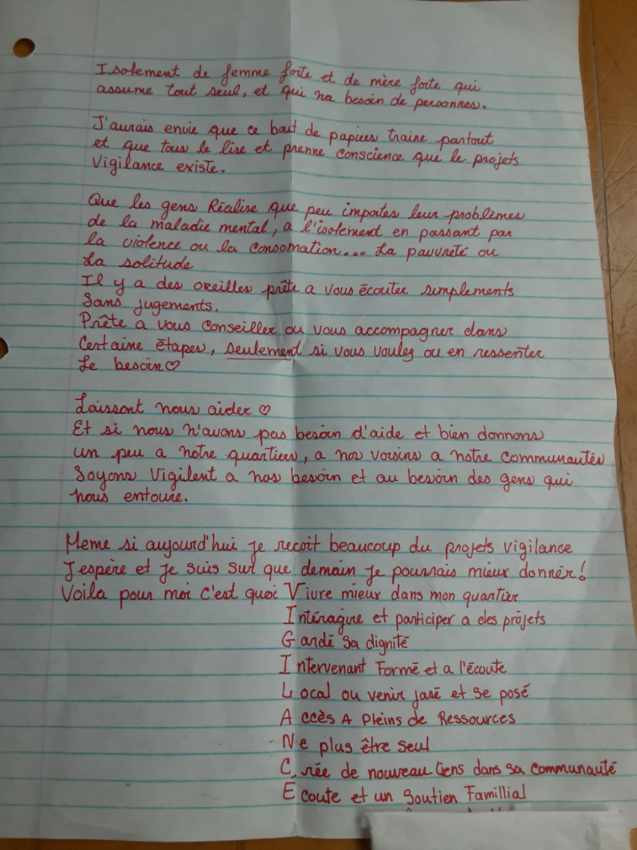 Isolement de femme forte et de mère forte qui
assume tout seul, et qui na besoin de personnes.
J'aurais envie que ce bout de papiers traine partout
et que tous le lise et prenne conscience que le projets
Vigilance existe.
Que les gens Réalise que peu importes leur problèmes
de la maladie mental, a l'isolement en passant par
la violence ou la consomation... La pauvreté ou
La solitude
Il y a des oreilles prête a vous écouter simplements
Sans jugements.
Prête a vous conseiller ou vous accompagner dans
Certaine étapes, seulement si vous voulez ou en ressenter
Le besoin ♡
Laissont nous aider ♡
Et si nous n'avons pas besoin d'aide et bien donnons
un peu a notre quartiers, a nos voisins a notre communautés
Soyons Vigilent a nos besoin et au besoin des gens qui
nous entoure.
Meme si aujourd'hui je recoit beaucoup du projets vigilance
J'espère et je suis sur que demain je pourrais mieux donner!
Voila pour moi c'est quoi Vivre mieux dans mon quartier
Intéragire et participer a des projets
Gardé sa dignité
Intervenant Formé et a l'écoute
Local ou venir jasé et se posé
Accès A Pleins de Ressources
Ne plus être seul
Crée de nouveau liens dans sa communauté
Ecoute et un Soutien Famillial